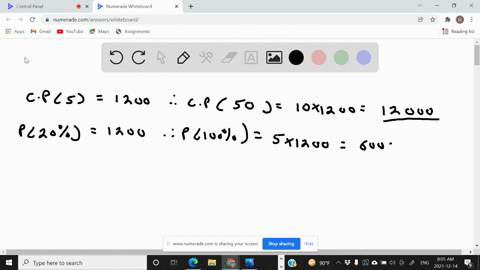 Control Panel
Numerade Whiteboard
numerade.com/answers/whiteboard/
Apps
Gmail
YouTube
Maps
Assignments
Reading list
C.P(5) = 1200 ∴ C.P(50) = 10×1200 = 12000
P(20%) = 1200 ∴ P(100%) = 5×1200 = 600
www.numerade.com is sharing your screen.
Stop sharing
Hide
Type here to search
90°F
ENG
6:05 AM
2021-12-14